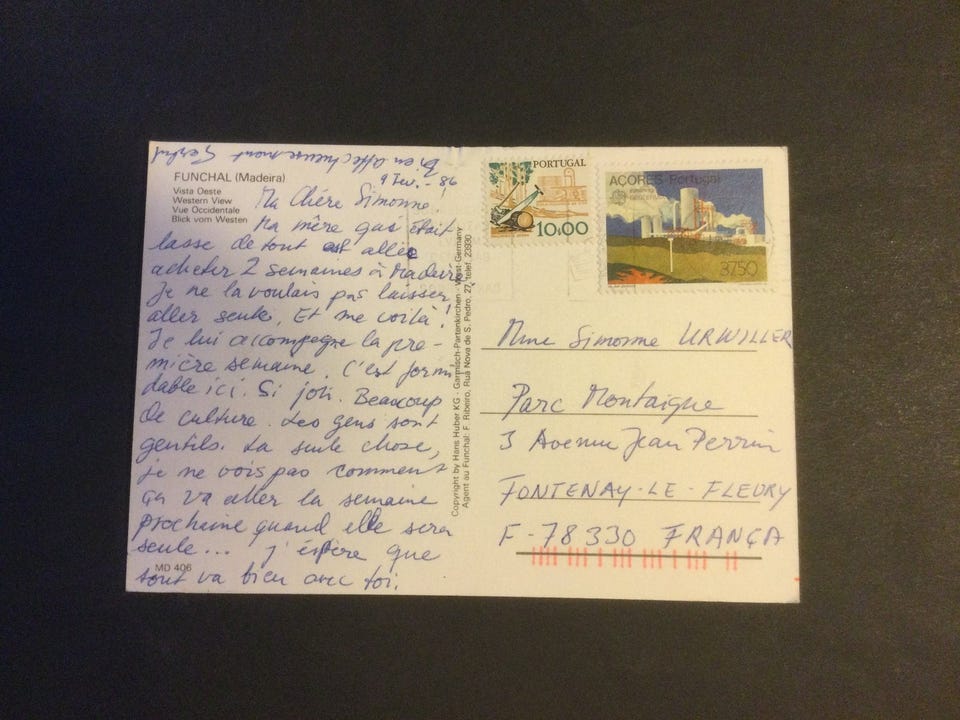 FUNCHAL (Madeira)
Vista Oeste
Western View
Vue Occidentale
Blick vom Westen
9 Fév. - 86
Ma Chère Simonne!
Ma mère qui était
lasse de tout est allée
acheter 2 semaines à Madeire.
Je ne la voulais pas laisser
aller seule. Et me voilà!
Je lui accompagne la pre-
mière semaine. C'est formi
dable ici. Si joli. Beaucoup
de culture. Les gens sont
gentils. La seule chose,
je ne vois pas comment
ça va aller la semaine
prochaine quand elle sera
seule... j'éspère que
tout va bien avec toi.
Bien affectueusement
MD 406
Copyright by Hans Huber KG - Garmisch-Partenkirchen - West-Germany
Agent au Funchal: F. Ribeiro, Rua Nova de S. Pedro, 27, Telef. 23930
PORTUGAL
10.00
AÇORES Portugal
37.50
Mme Simonne URWILLER
Parc Montaigne
3 Avenue Jean Perrin
FONTENAY-LE-FLEURY
F-78330 FRANÇA